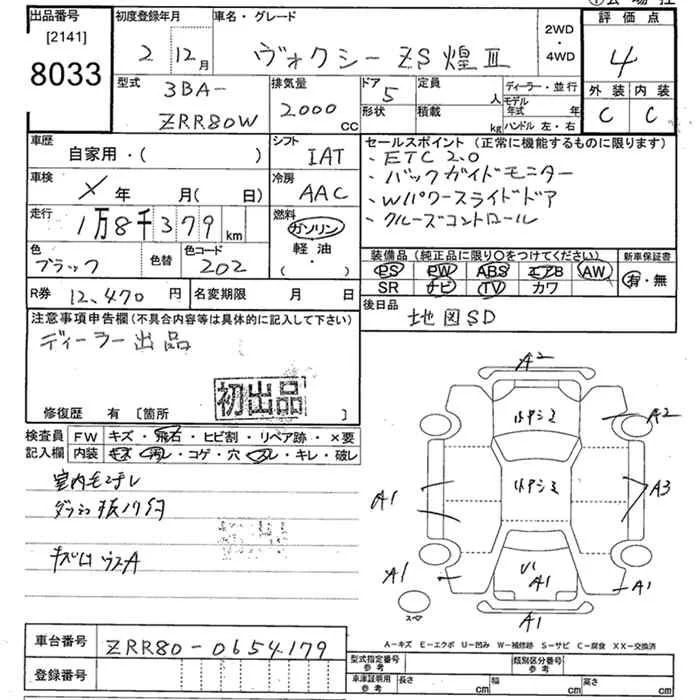 出品番号
[2141]
8033
初度登録年月
2 12月
車名・グレード
ヴォクシー ZS 煌 Ⅲ
2WD
・
4WD
評価点
4
外装 内装
C C
型式
3BA-
ZRR80W
排気量
2000
cc
ドア 5
形状
定員 人
積載 kg
ディーラー・並行
モデル
年式 年
ハンドル 左・右
車歴
自家用・( )
シフト
IAT
車検
X 年 月( 日)
冷房
AAC
走行
1万8千379 km
燃料
ガソリン
軽油
・( )
色
ブラック
色替
色コード
202
R券 12,470 円
名変期限 月 日
セールスポイント (正常に機能するものに限ります)
・ETC 2.0
・バックガイドモニター
・Wパワースライドドア
・クルーズコントロール
装備品 (純正品に限り○をつけてください)
PS PW ABS エアB AW
SR ナビ TV カワ
新車保証書
有・無
後日品
地図SD
注意事項申告欄(不具合内容等は具体的に記入して下さい)
ディーラー出品
初出品
修復歴 有 [箇所 ]
検査員
記入欄
FW キズ・飛石・ヒビ割・リペア跡・×要
内装 キズ・汚レ・コゲ・穴・スレ・キレ・破レ
A2
A2
A1
A3
A1
U1
A1
A1
A1
スペア
A-キズ E-エクボ U-凹み W-補修跡 S-サビ C-腐食 XX-交換済
車台番号
ZRR80-0654179
登録番号
型式指定番号
参考
類別区分番号
参考
車庫証明用
参考
長さ cm
幅 cm
高さ cm